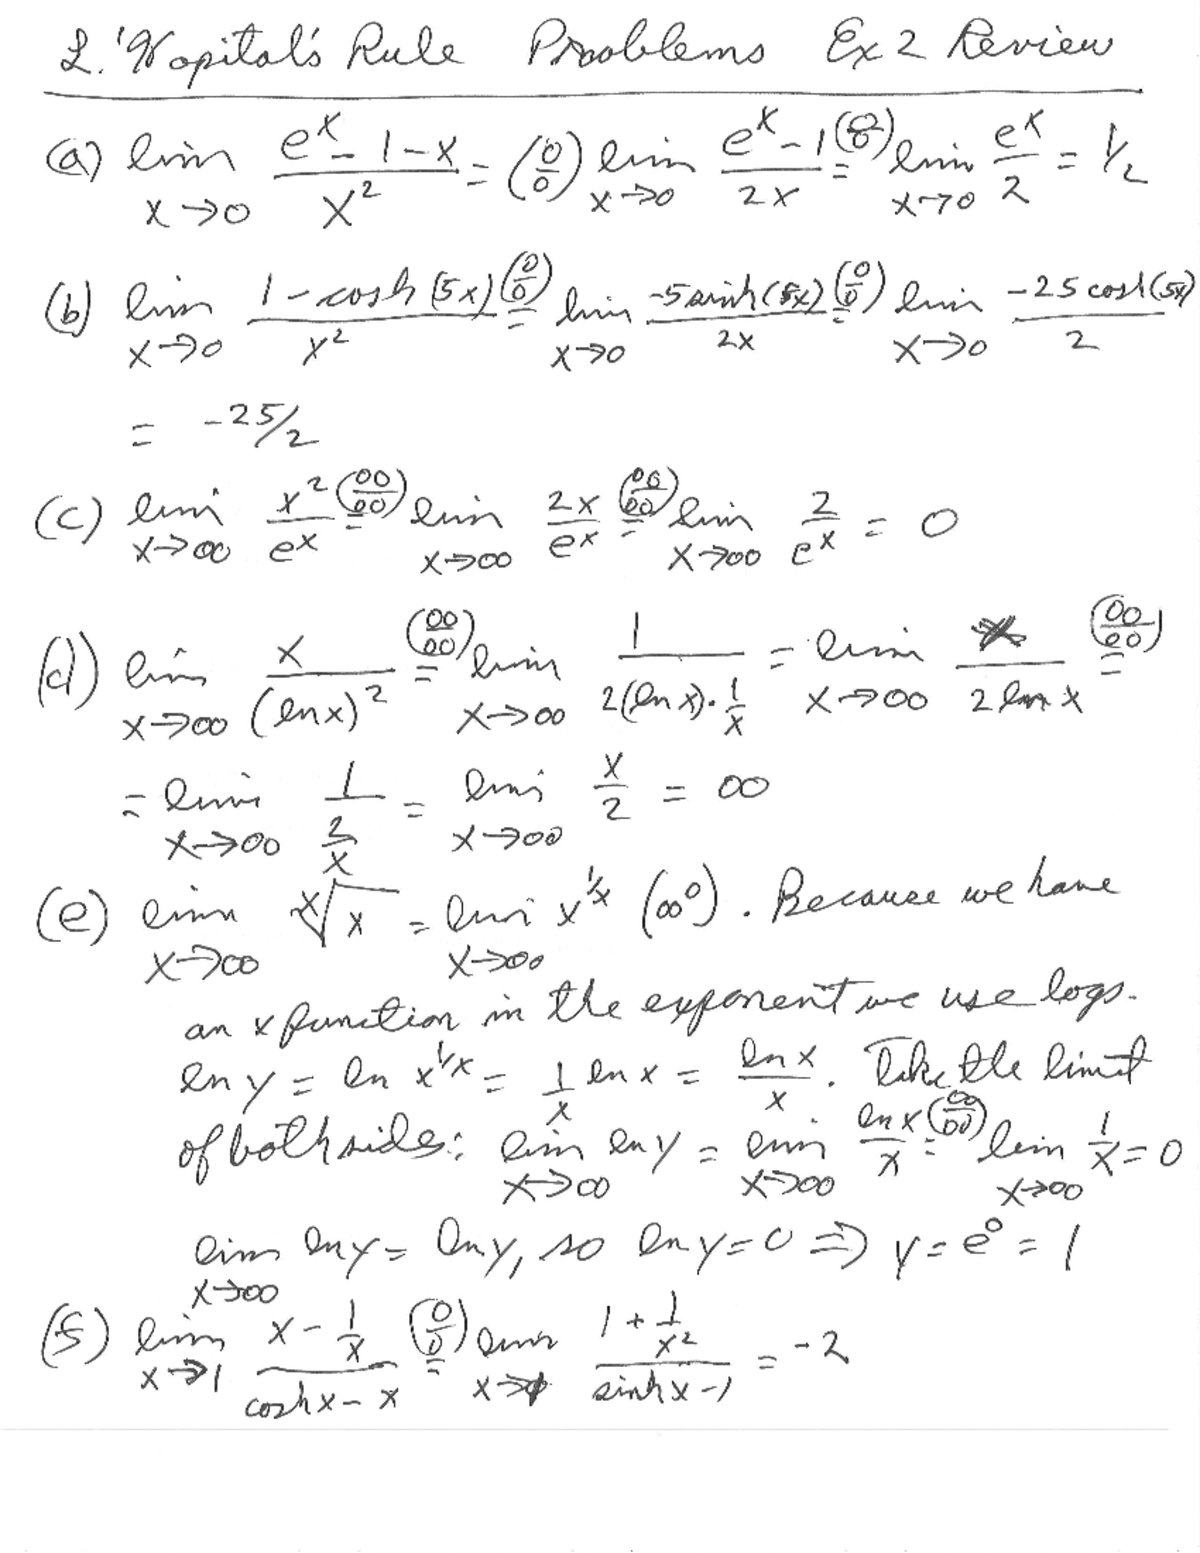 L'Hopital's Rule Problems Ex 2 Review
(a) lim x→0 (e^x - 1 - x)/x^2 = (0/0) lim x→0 (e^x - 1)/2x (0/0)= lim x→0 e^x/2 = 1/2
(b) lim x→0 (1 - cosh(5x))/x^2 (0/0)= lim x→0 -5 sinh(5x)/2x (0/0)= lim x→0 -25 cosh(5x)/2
= -25/2
(c) lim x→∞ x^2/e^x (∞/∞)= lim x→∞ 2x/e^x (∞/∞)= lim x→∞ 2/e^x = 0
(d) lim x→∞ x/(ln x)^2 (∞/∞)= lim x→∞ 1/(2(ln x)·1/x) = lim x→∞ x/(2 ln x) (∞/∞)=
= lim x→∞ 1/(2/x) = lim x→∞ x/2 = ∞
(e) lim x→∞ ˣ√x = lim x→∞ x^(1/x) (∞^0). Because we have
an x function in the exponent we use logs.
ln y = ln x^(1/x) = 1/x ln x = ln x/x. Take the limit
of both sides: lim x→∞ ln y = lim x→∞ ln x/x (∞/∞)= lim x→∞ 1/x = 0
lim x→∞ ln y = ln y, so ln y = 0 ⇒ y = e^0 = 1
(f) lim x→1 (x - 1/x)/(cosh x - x) (0/0)= lim x→1 (1 + 1/x^2)/(sinh x - 1) = -2